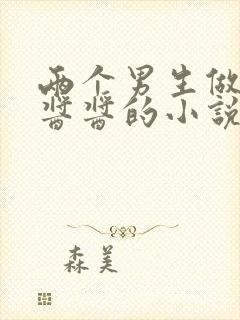 两个男生做
酱酱的小说
森美